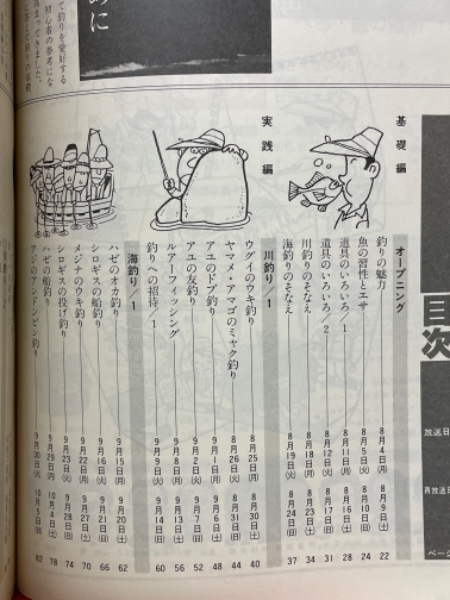 目次
放送日
再放送日
ページ
基礎編
オープニング
釣りの魅力 8月4日(月) 8月9日(土) 22
魚の習性とエサ 8月5日(火) 8月10日(日) 24
道具のいろいろ/1 8月11日(月) 8月16日(土) 28
道具のいろいろ/2 8月12日(火) 8月17日(日) 31
川釣りのそなえ 8月18日(月) 8月23日(土) 34
海釣りのそなえ 8月19日(火) 8月24日(日) 37
実践編
川釣り/1
ウグイのウキ釣り 8月25日(月) 8月30日(土) 40
ヤマメ・アマゴのミャク釣り 8月26日(火) 8月31日(日) 44
アユのドブ釣り 9月1日(月) 9月6日(土) 48
アユの友釣り 9月2日(火) 9月7日(日) 52
ルアーフィッシング 9月8日(月) 9月13日(土) 56
釣りへの招待/1 9月9日(火) 9月14日(日) 60
海釣り/1
ハゼのオカ釣り 9月15日(月) 9月20日(土) 62
シロギスの船釣り 9月16日(火) 9月21日(日) 66
メジナのウキ釣り 9月22日(月) 9月27日(土) 70
シロギスの投げ釣り 9月23日(火) 9月28日(日) 74
ハゼの船釣り 9月29日(月) 10月4日(土) 78
アジのアンドンビシ釣り 9月30日(火) 10月5日(日) 82
めに
て釣りを愛好する
初心者の参考にな
高まってきました。